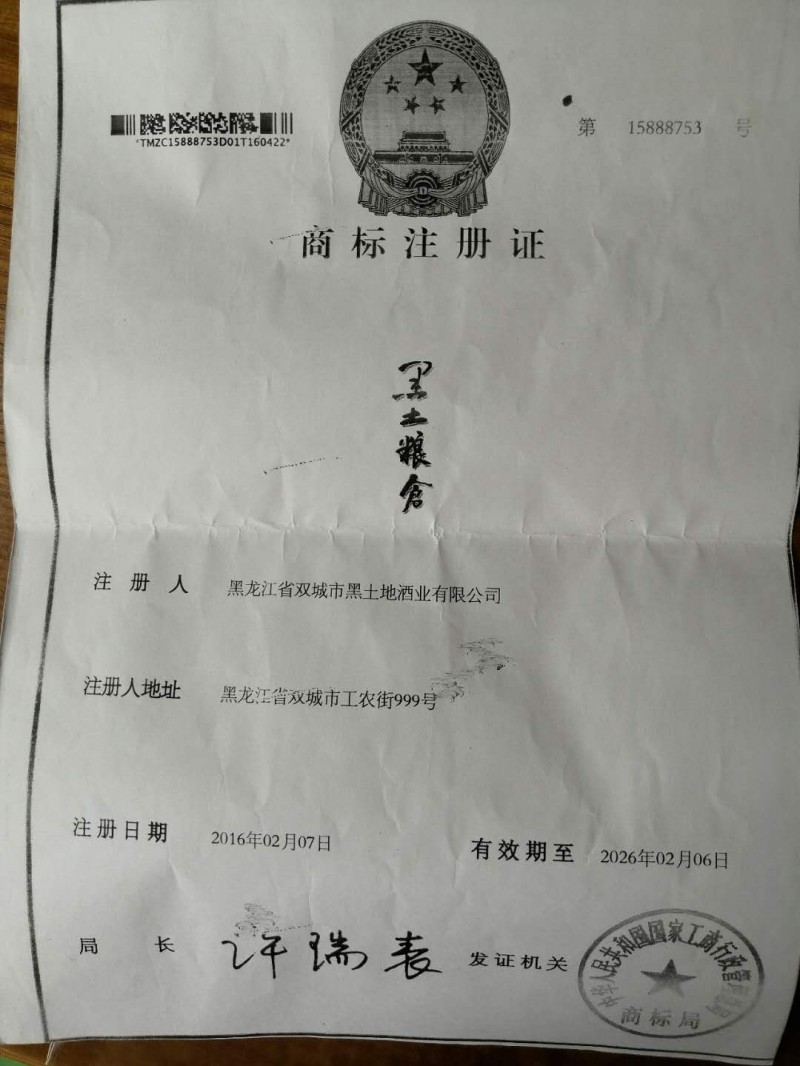 第 15888753 号
*TMZC15888753D01T160422*
商标注册证
黑土粮仓
注册人 黑龙江省双城市黑土地酒业有限公司
注册人地址 黑龙江省双城市工农街999号
注册日期 2016年02月07日 有效期至 2026年02月06日
局长 许瑞表 发证机关
中华人民共和国国家工商行政管理总局
商标局